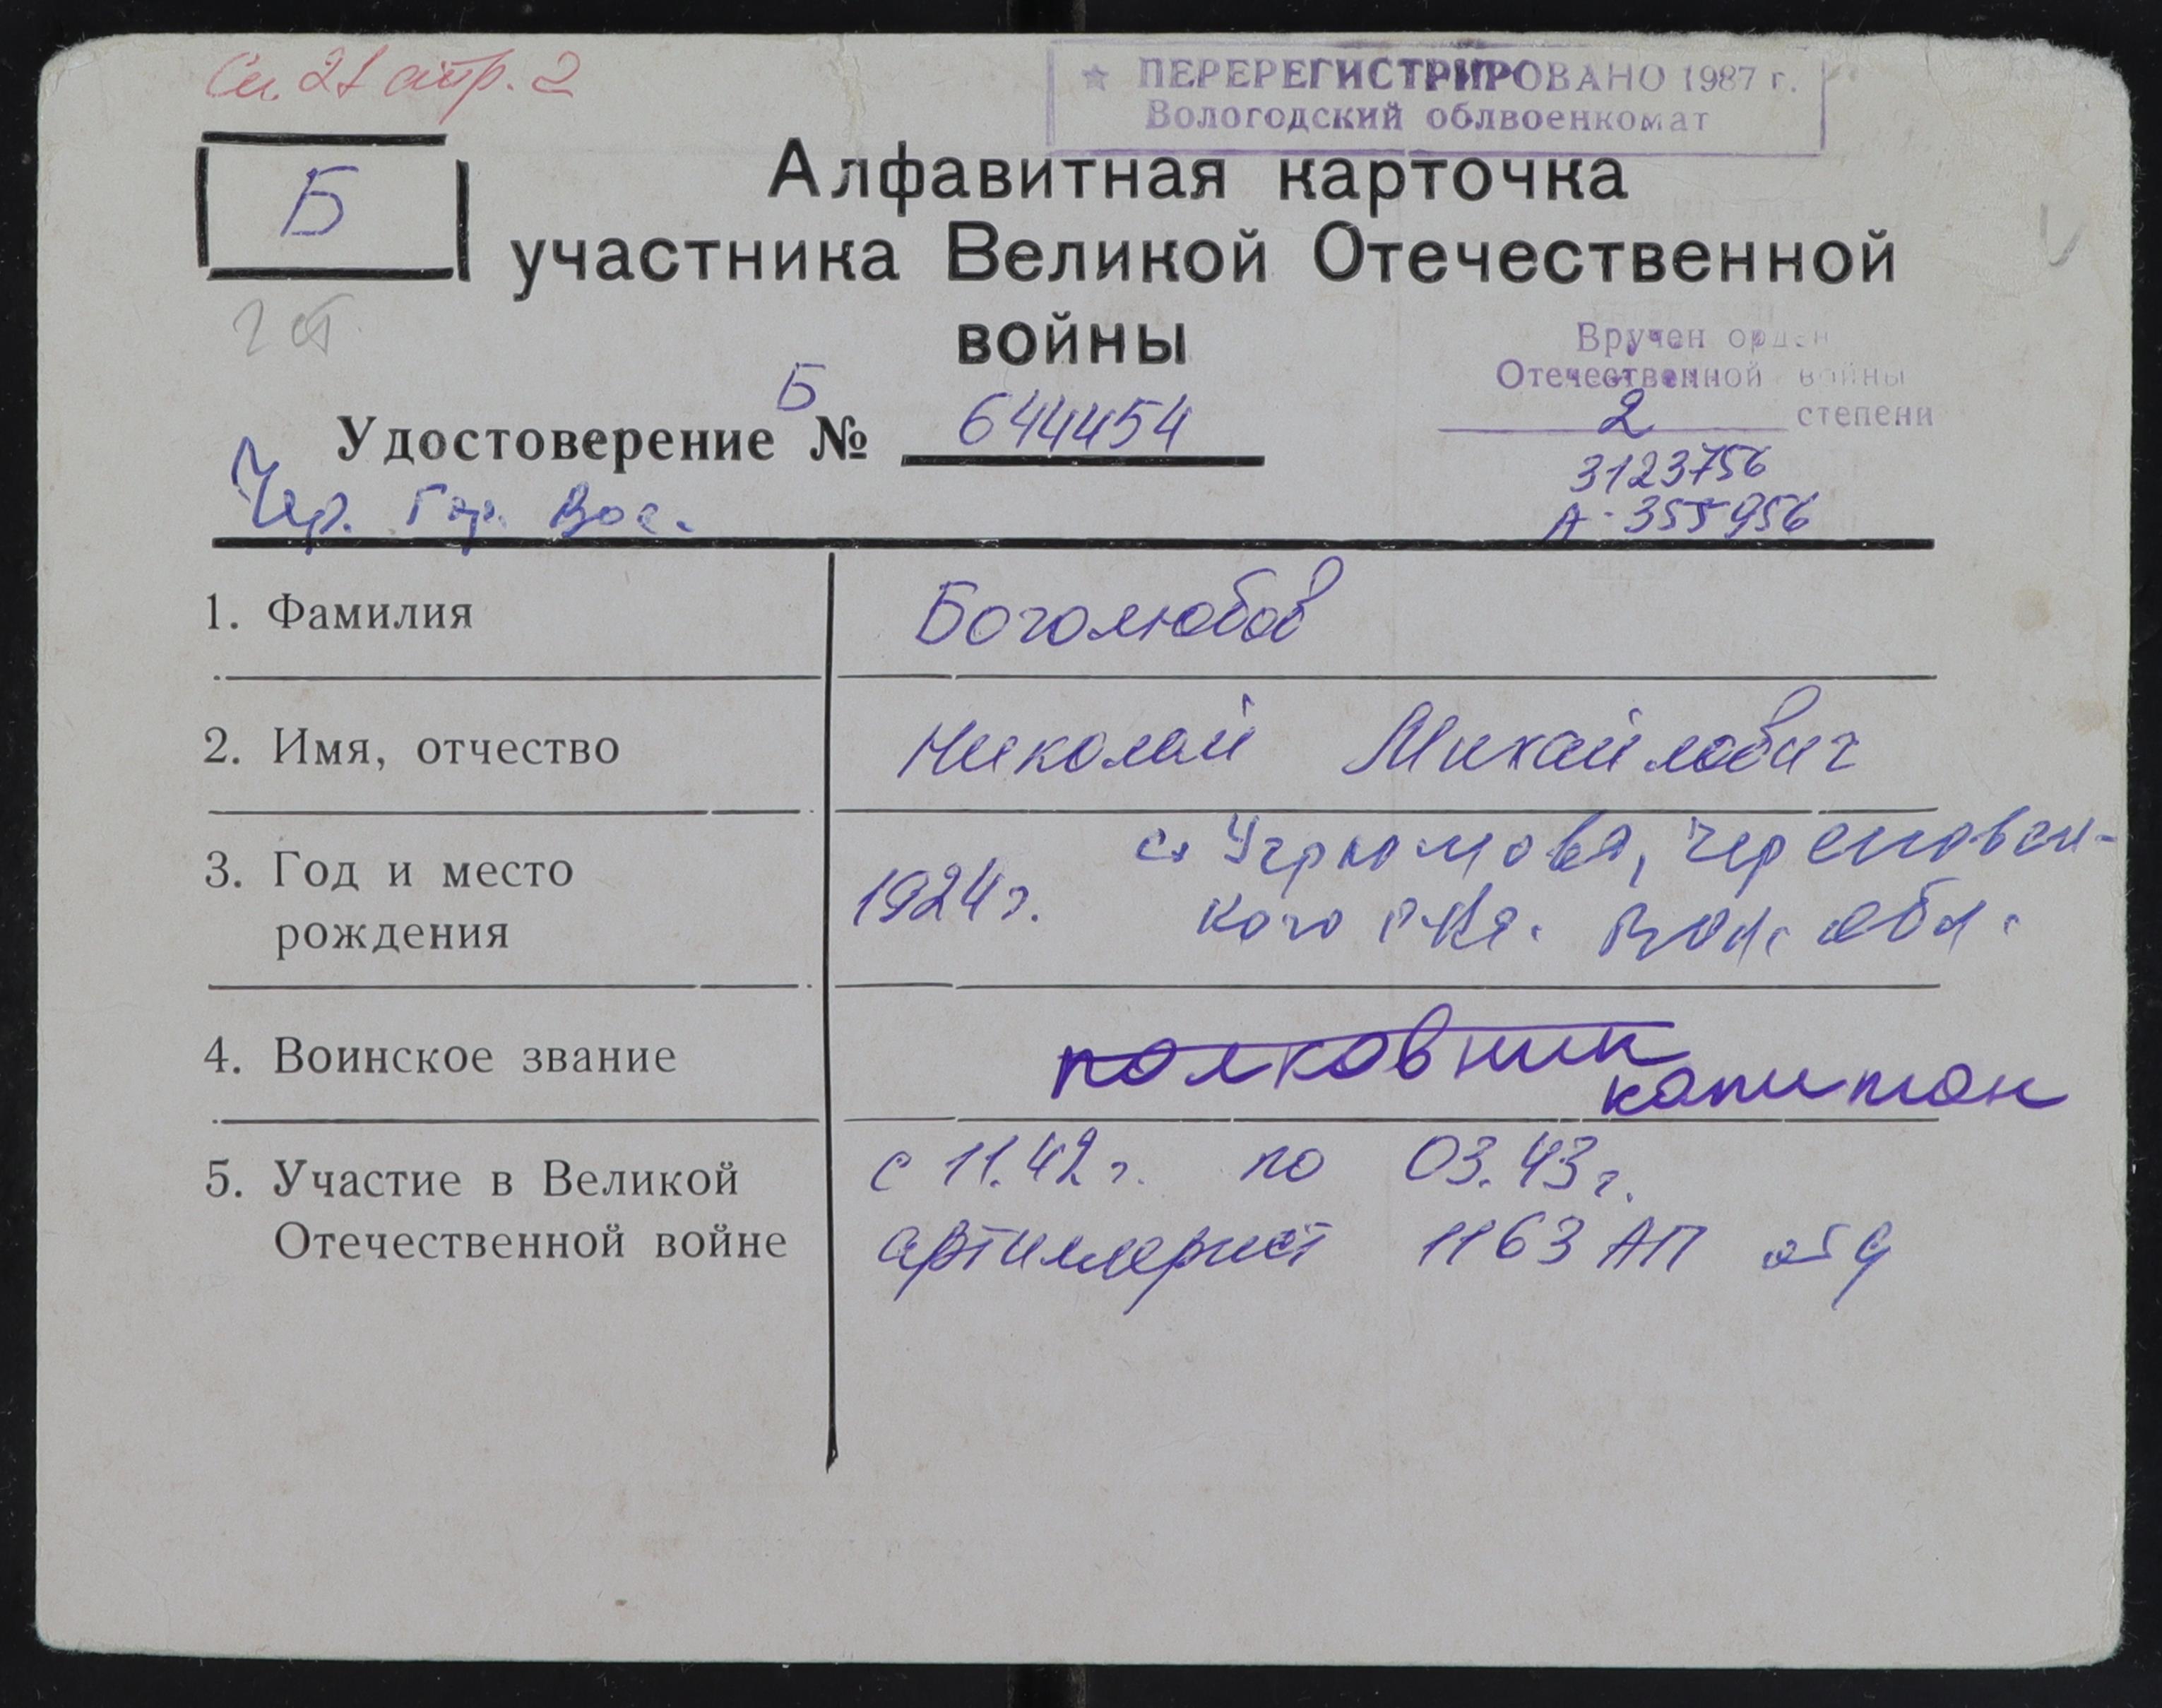 Сп. 21 стр. 2
★ ПЕРЕРЕГИСТРИРОВАНО 1987 г.
Вологодский облвоенкомат
Б
Алфавитная карточка
участника Великой Отечественной
войны
Вручен орден
Отечественной войны
2 степени
3123756
А-355956
Удостоверение Б № 644454
Чер. Гор. Вое.
1. Фамилия Боголюбов
2. Имя, отчество Николай Михайлович
3. Год и место
рождения
1924 г. с. Череповец-
кого Вол. обл.
4. Воинское звание полковник капитан
5. Участие в Великой
Отечественной войне
с 11.42 г. по 03.43 г.
артиллерист 1163 АП